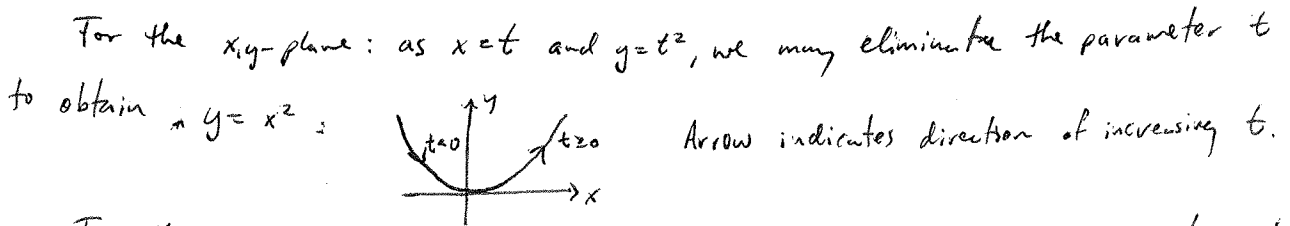 For the x,y-plane : as x=t and y=t², we may eliminate the parameter t
to obtain y = x² :
y
t<0
t≥0
x
Arrow indicates direction of increasing t.